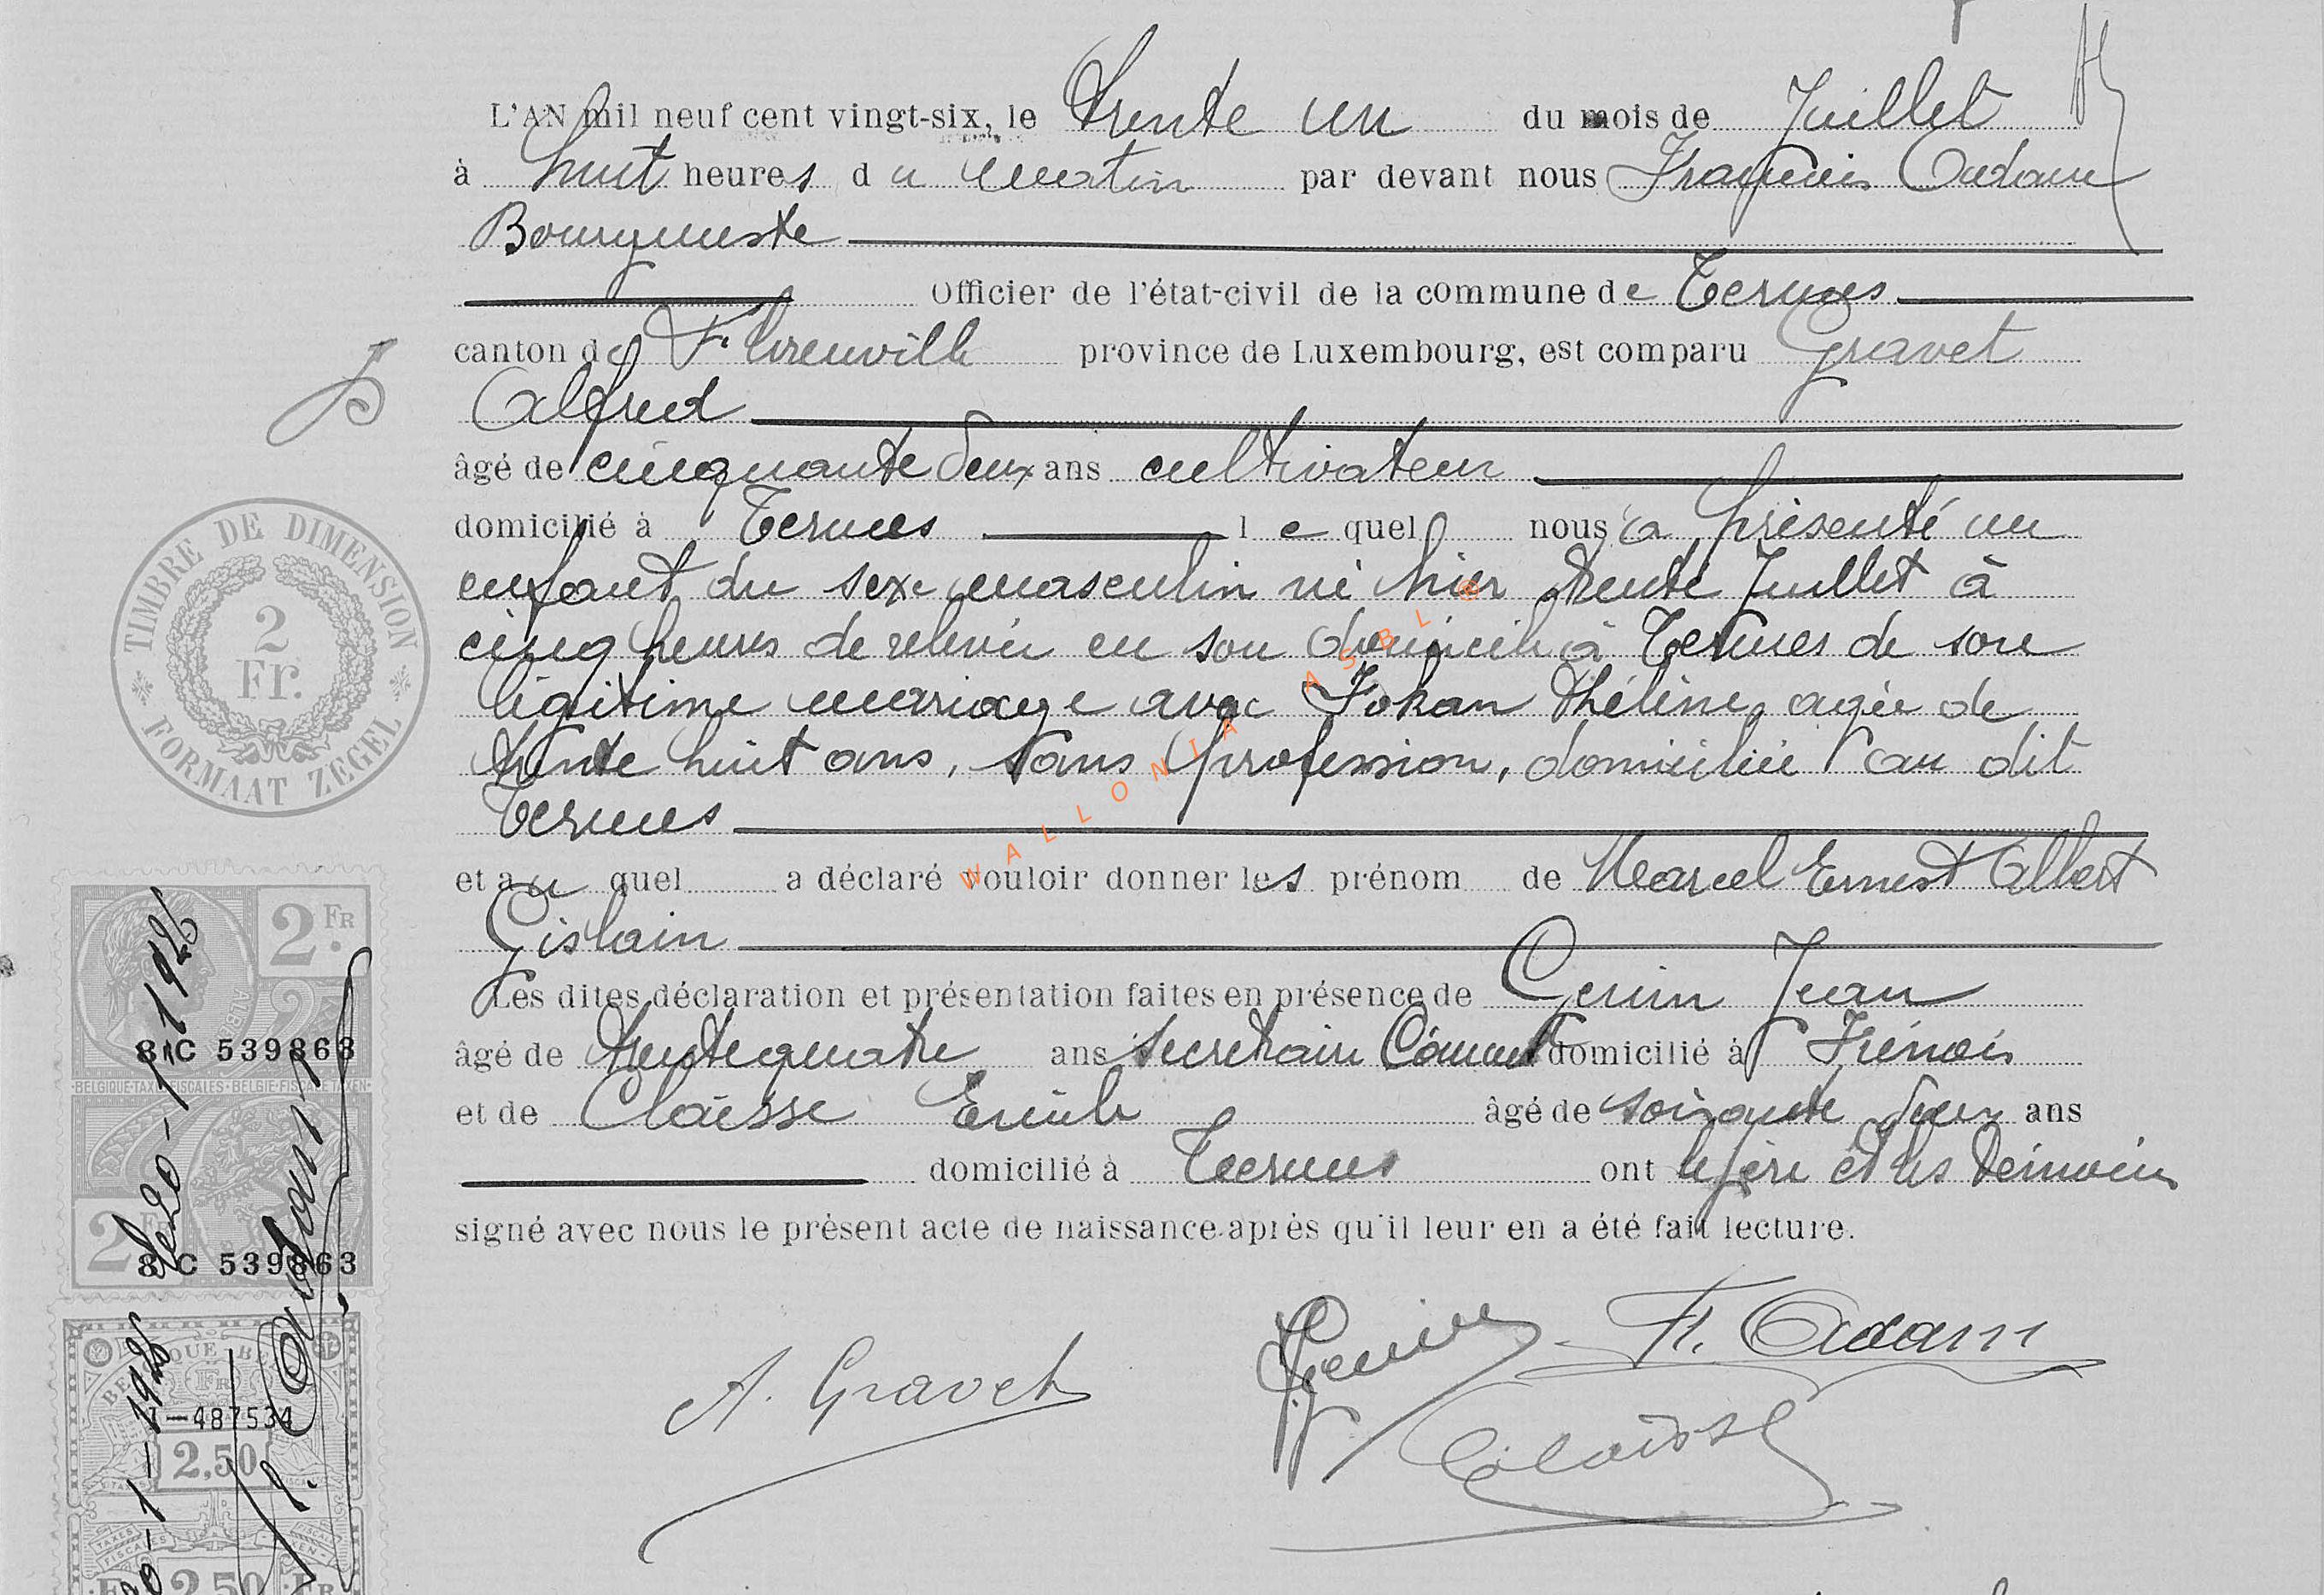 L'AN mil neuf cent vingt-six, le trente un du mois de Juillet
à huit heures du matin par devant nous François Adam
Bourgmestre
Officier de l'état-civil de la commune de Termes
canton de Florenville province de Luxembourg, est comparu Gravet
Alfred
âgé de cinquante deux ans cultivateur
domicilié à Termes lequel nous a présenté un
enfant du sexe masculin né hier trente Juillet à
cinq heures de relevée en son domicile à Termes de son
légitime mariage avec Hélène, agée de
trente huit ans, sans profession, domiciliée au dit
Termes
et au quel a déclaré vouloir donner les prénom de Marcel Ernest Albert
Gislain
Les dites déclaration et présentation faites en présence de Gerin Jean
âgé de trente quatre ans secrétaire Commul domicilié à
et de Claisse Emile âgé de soixante deux ans
domicilié à Termes ont le père et les témoins
signé avec nous le présent acte de naissance après qu'il leur en a été fait lecture.
A. Gravet
Fr. Adam
Claisse
TIMBRE DE DIMENSION
2
Fr.
FORMAAT ZEGEL
2 FR
8 C 539863
BELGIQUE-TAXES FISCALES - BELGIE-FISCALE TAXEN
2 FR
8 C 539863
1926
Adam
1-1926
487534
2,50
2,50
WALLONIA ASBL ©